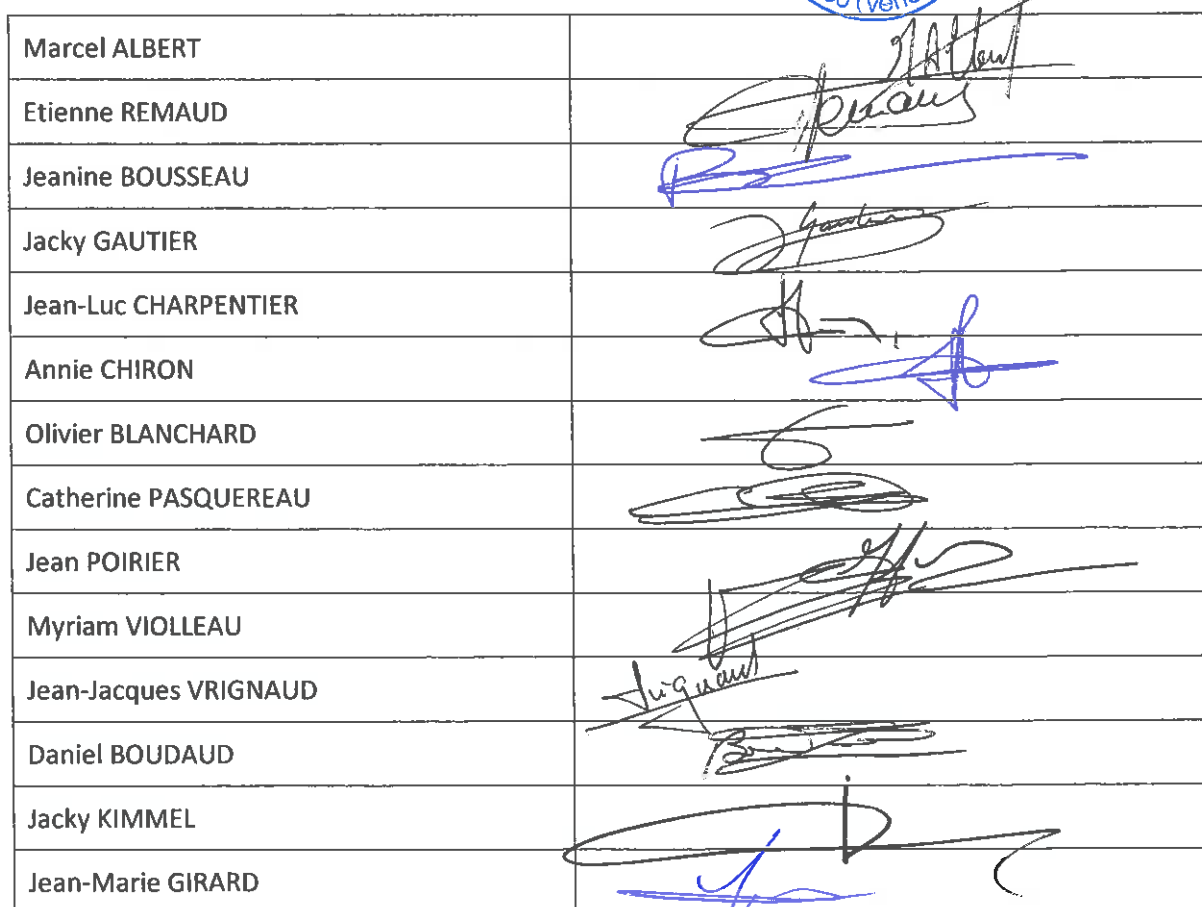 Marcel ALBERT
Etienne REMAUD
Jeanine BOUSSEAU
Jacky GAUTIER
Jean-Luc CHARPENTIER
Annie CHIRON
Olivier BLANCHARD
Catherine PASQUEREAU
Jean POIRIER
Myriam VIOLLEAU
Jean-Jacques VRIGNAUD
Daniel BOUDAUD
Jacky KIMMEL
Jean-Marie GIRARD